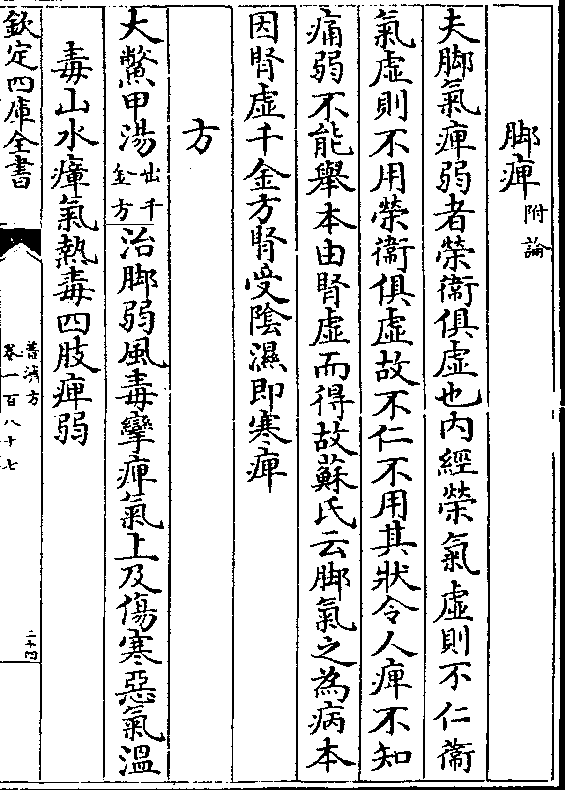 脚痺附論
夫脚氣痺弱者榮衞俱虚也内經榮氣虚則不仁衞
氣虚則不用榮衞俱虚故不仁不用其狀令人痺不知
痛弱不能舉本由腎虚而得故蘇氏云脚氣之為病本
因腎虚千金方腎受陰濕即寒痺
方
大鱉甲湯出千金方治脚弱風毒攣痺氣上及傷寒惡氣溫
毒山水瘴氣熱毒四肢痺弱
欽定四庫全書
普濟方
卷一百八十七
二十四